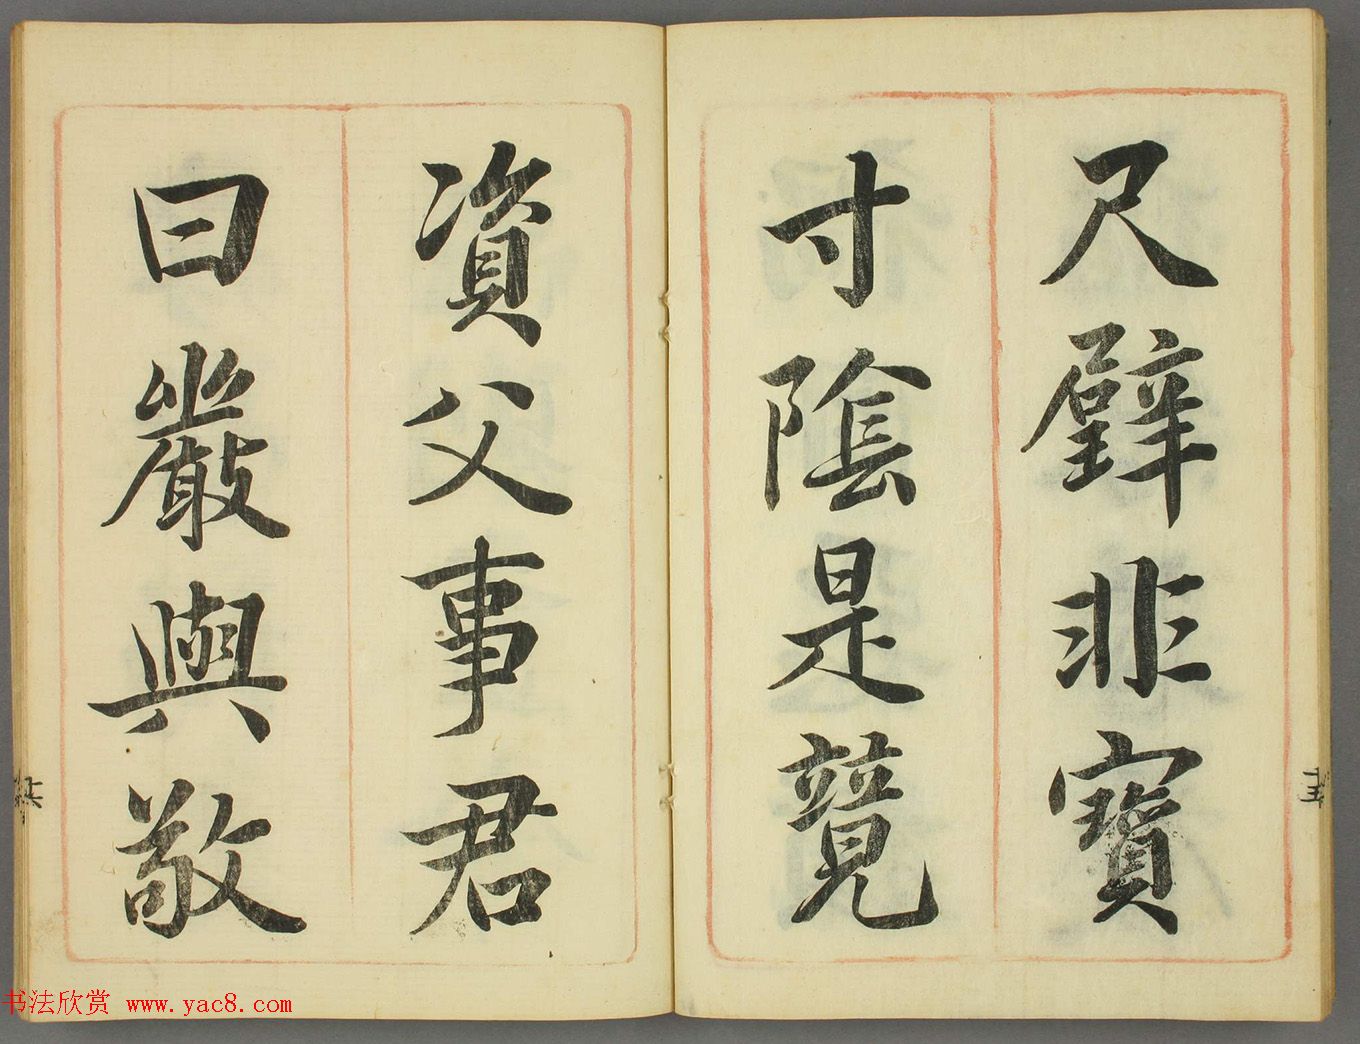 尺璧非寶
寸陰是競
資父事君
曰嚴與敬
書法欣赏 www.yac8.com